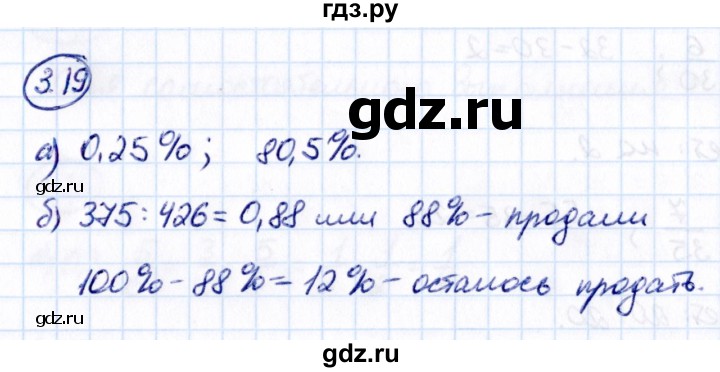 гдз.ру
3.19
gdz.ru
а) 0,25%; 80,5%.
gdz.ru
б) 375:426=0,88 или 88% - продали
100% - 88% = 12% - осталось продать.
gdz.ru
gdz.ru